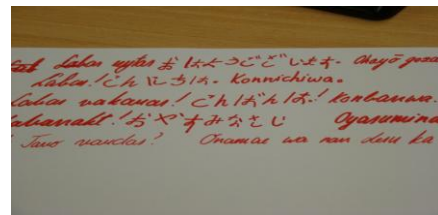 Labas rytas おはようございます. Ohayō goza
Labas! こんにちは. Konnichiwa.
Labas vakaras! こんばんは! Konbanwa.
Labanakt! おやすみなさい Oyasumina
Tavo vardas? Onamae wa nan desu ka